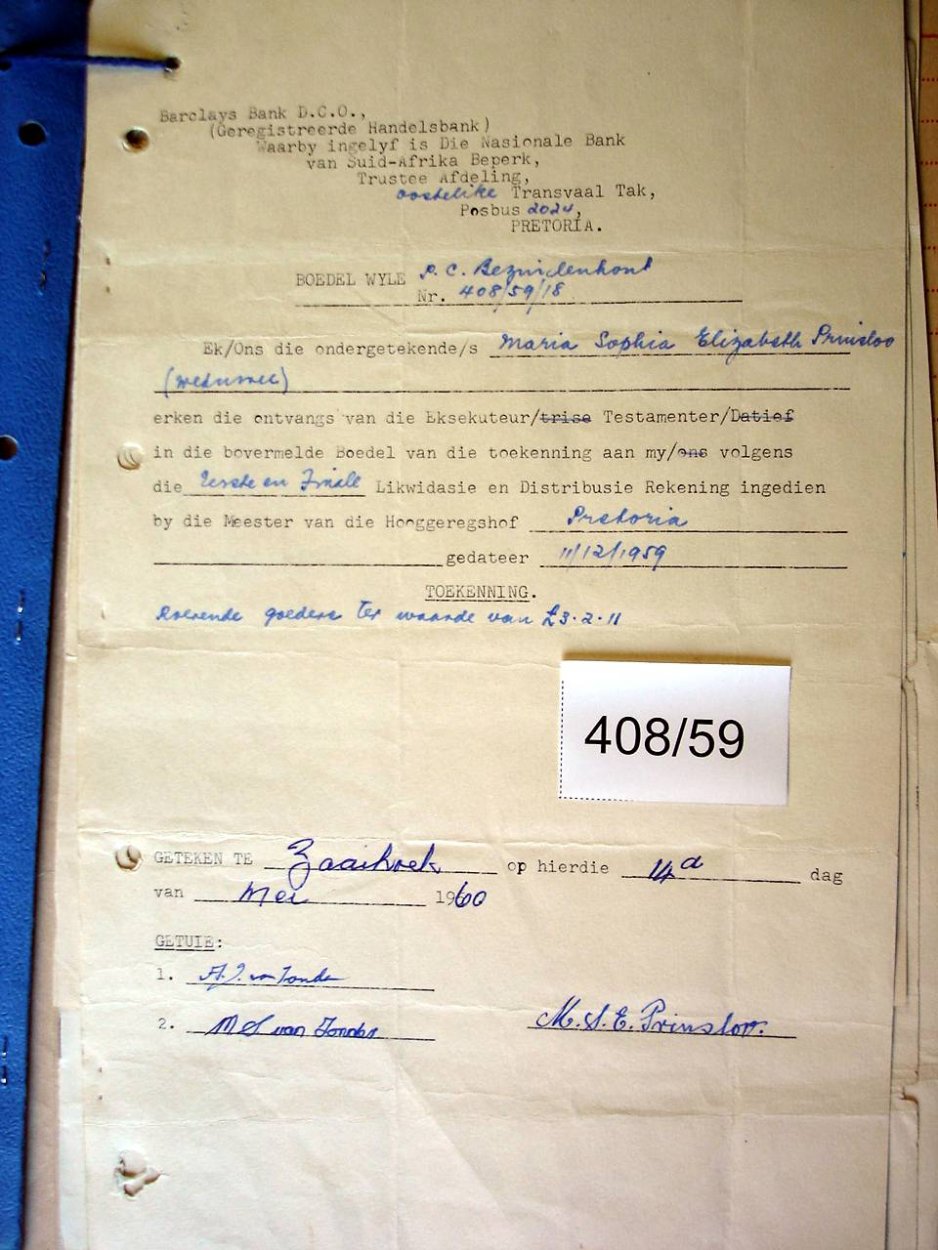 Barclays Bank D.C.O.,
(Geregistreerde Handelsbank)
Waarby ingelyf is Die Nasionale Bank
van Suid-Afrika Beperk,
Trustee Afdeling,
Oostelike Transvaal Tak,
Posbus 2024,
PRETORIA.
BOEDEL WYLE P. C. Bezuidenhout
Nr. 408/59/18
Ek/Ons die ondergetekende/s Maria Sophia Elizabeth Prinsloo
(weduwee)
erken die ontvangs van die Eksekuteur/trise Testamenter/Datief
in die bovermelde Boedel van die toekenning aan my/ons volgens
die Eerste en Finale Likwidasie en Distribusie Rekening ingedien
by die Meester van die Hooggeregshof Pretoria
gedateer 11/12/1959
TOEKENNING.
Roerende goedere ter waarde van £3-2-11
408/59
GETEKEN TE Zaaihoek op hierdie 14d dag
van Mei 1960
GETUIE:
1. van Tonder
2. van Tonder M. S. E. Prinsloo.